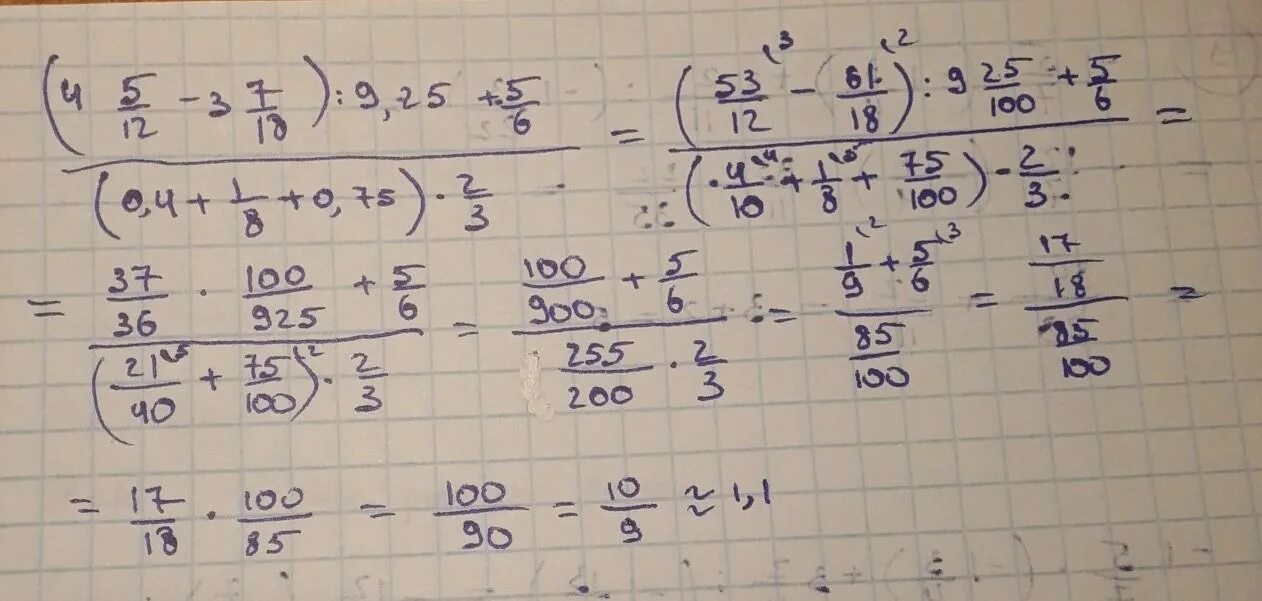 (4 5/12 - 3 7/18) : 9,25 + 5/6 / (0,4 + 1/8 + 0,75) · 2/3 = (53/12 \3 - (61/18 \2) : 9 25/100 + 5/6 / (4/10 \4 + 1/8 \5 + 75/100) · 2/3 =
= 37/36 · 100/925 + 5/6 / (21/40 \5 + 75/100 \2) · 2/3 = 100/900 + 5/6 / 255/200 · 2/3 = 1/9 \2 + 5/6 \3 / 85/100 = 17/18 / 85/100 =
= 17/18 · 100/85 = 100/90 = 10/9 ≈ 1,1